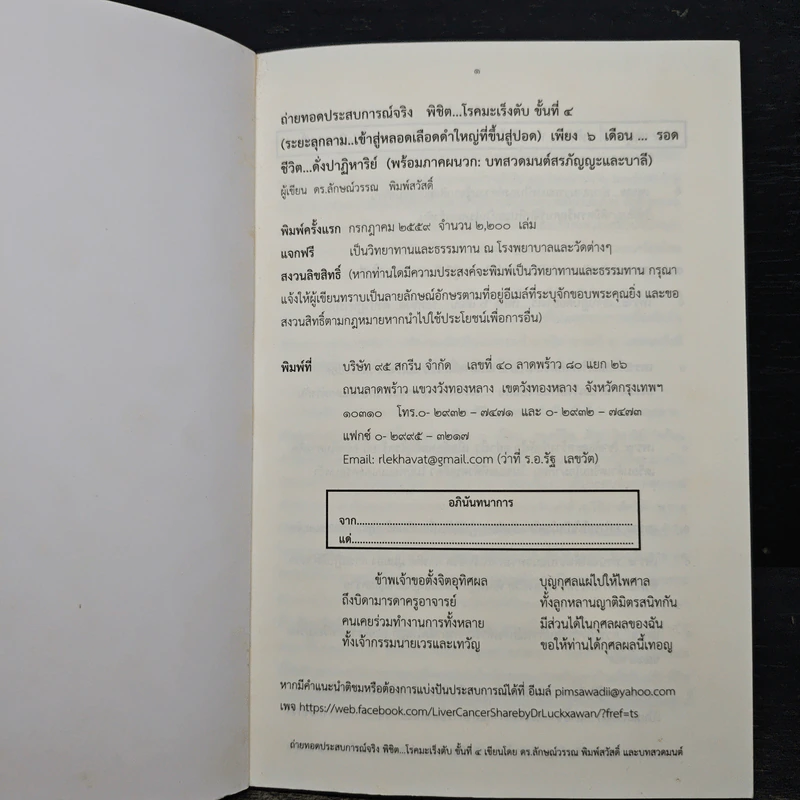 ๑
ถ่ายทอดประสบการณ์จริง พิชิต...โรคมะเร็งตับ ขั้นที่ ๔
(ระยะลุกลาม..เข้าสู่หลอดเลือดดำใหญ่ที่ขึ้นสู่ปอด) เพียง ๖ เดือน ... รอด
ชีวิต...ดั่งปาฏิหาริย์ (พร้อมภาคผนวก: บทสวดมนต์สรภัญญะและบาลี)
ผู้เขียน ดร.ลักษณ์วรรณ พิมพ์สวัสดิ์
พิมพ์ครั้งแรก กรกฎาคม ๒๕๕๙ จำนวน ๒,๒๐๐ เล่ม
แจกฟรี เป็นวิทยาทานและธรรมทาน ณ โรงพยาบาลและวัดต่างๆ
สงวนลิขสิทธิ์ (หากท่านใดมีความประสงค์จะพิมพ์เป็นวิทยาทานและธรรมทาน กรุณา
แจ้งให้ผู้เขียนทราบเป็นลายลักษณ์อักษรตามที่อยู่อีเมล์ที่ระบุจักขอบพระคุณยิ่ง และขอ
สงวนสิทธิ์ตามกฎหมายหากนำไปใช้ประโยชน์เพื่อการอื่น)
พิมพ์ที่ บริษัท ๙๕ สกรีน จำกัด เลขที่ ๔๐ ลาดพร้าว ๘๐ แยก ๒๖
ถนนลาดพร้าว แขวงวังทองหลาง เขตวังทองหลาง จังหวัดกรุงเทพฯ
๑๐๓๑๐ โทร.๐- ๒๙๓๒ – ๗๔๗๑ และ ๐- ๒๙๓๒ – ๗๔๗๓
แฟกซ์ ๐- ๒๙๙๕ – ๓๒๑๗
Email: rlekhavat@gmail.com (ว่าที่ ร.อ.รัฐ เลขวัต)
อภินันทนาการ
จาก................................................................................
แด่................................................................................
ข้าพเจ้าขอตั้งจิตอุทิศผล บุญกุศลแผ่ไปให้ไพศาล
ถึงบิดามารดาครูอาจารย์ ทั้งลูกหลานญาติมิตรสนิทกัน
คนเคยร่วมทำงานการทั้งหลาย มีส่วนได้ในกุศลผลของฉัน
ทั้งเจ้ากรรมนายเวรและเทวัญ ขอให้ท่านได้กุศลผลนี้เทอญ
หากมีคำแนะนำติชมหรือต้องการแบ่งปันประสบการณ์ได้ที่ อีเมล์ pimsawadii@yahoo.com
เพจ https://web.facebook.com/LiverCancerSharebyDrLuckxawan/?fref=ts
ถ่ายทอดประสบการณ์จริง พิชิต...โรคมะเร็งตับ ขั้นที่ ๔ เขียนโดย ดร.ลักษณ์วรรณ พิมพ์สวัสดิ์ และบทสวดมนต์